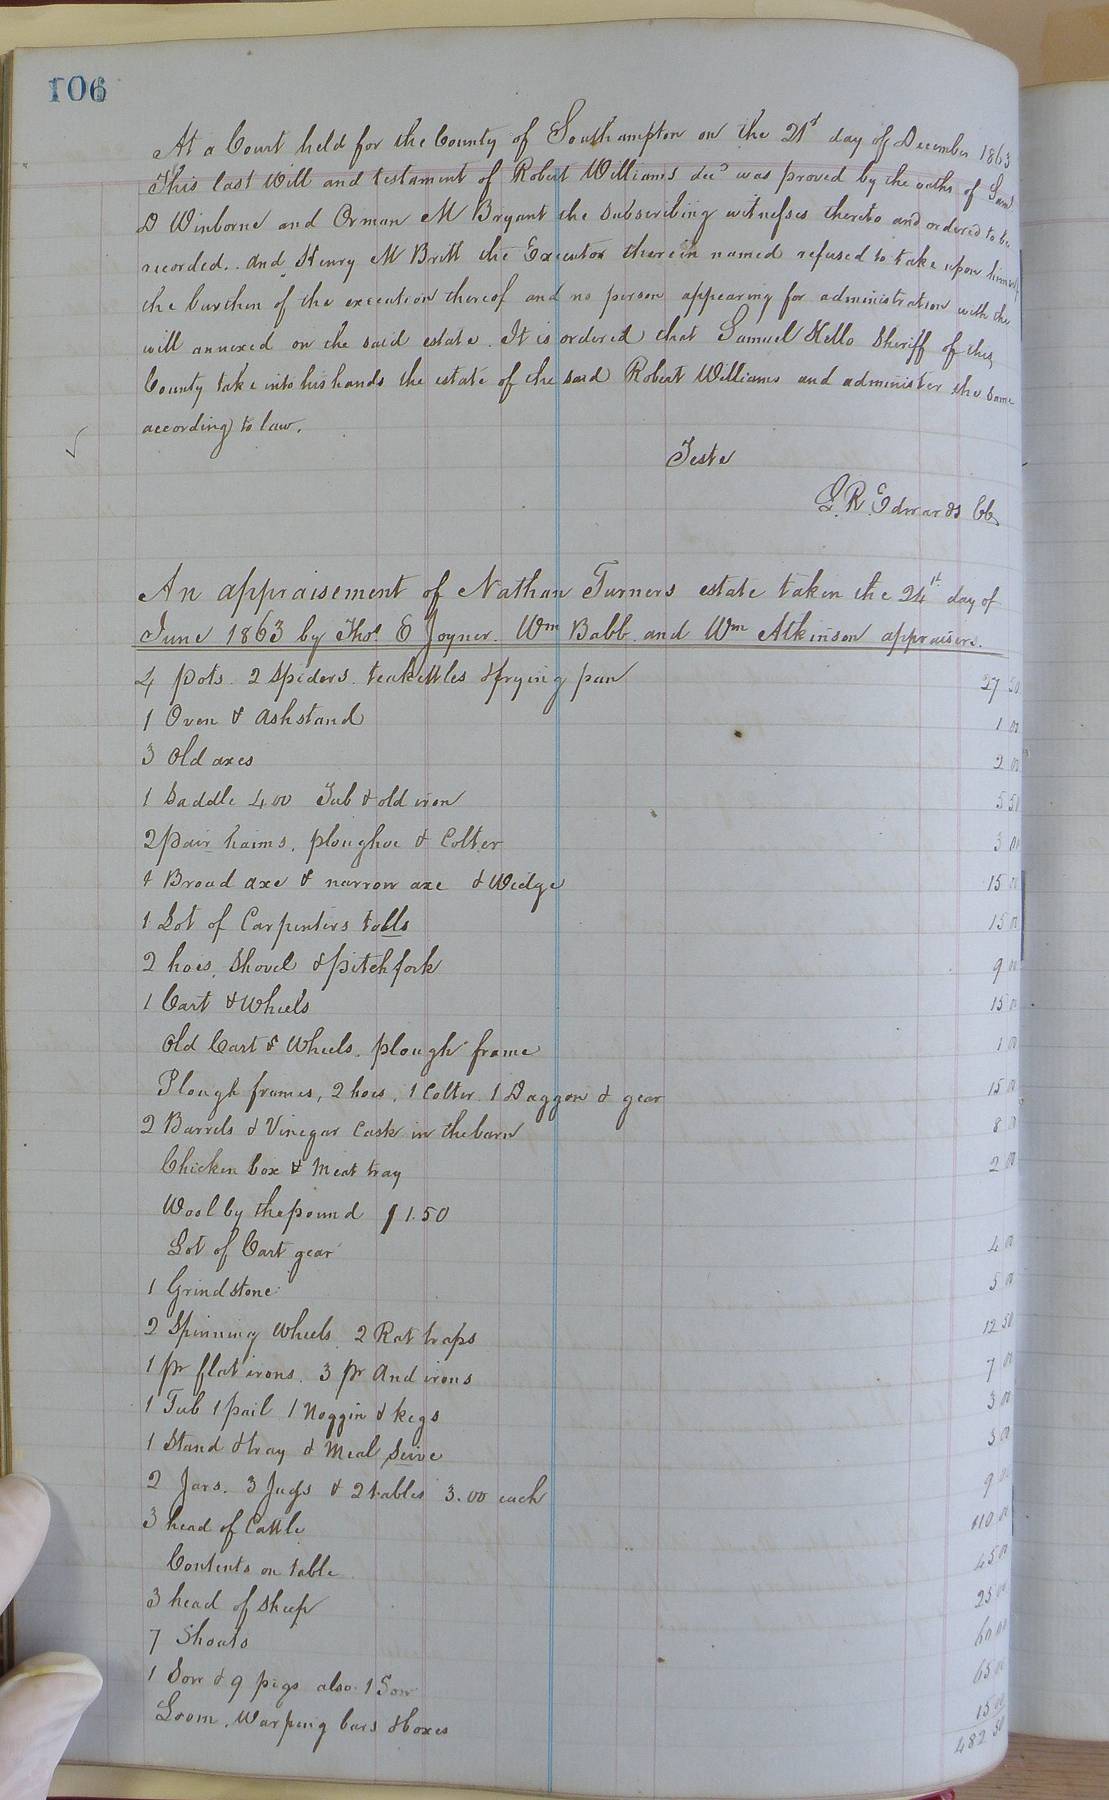 106
At a Court held for the County of Southampton on the 21st day of December 1863
This last Will and testament of Robert Williams decd was proved by the oaths of Saml
D Winborne and Orman M Bryant the Subscribing witnesses thereto and ordered to be
recorded. And Henry M Britt the Executor therein named refused to take upon himself
the burthen of the execution thereof and no person appearing for administration with the
will annexed on the said estate. It is ordered that Samuel Kello Sheriff of this
County take into his hands the estate of the said Robert Williams and administer the same
according to law.
Teste
G. R. Edwards CC
An appraisement of Nathan Turners estate taken the 24th day of
June 1863 by Thos. E Joyner. Wm Babb. and Wm Atkinson appraisers.
4 pots. 2 Spiders. teakettles & frying pan 27 50
1 Oven & ashstand 1 00
3 Old axes 2 00
1 Saddle 4.00 Tub & old iron 5 50
2 pair haims, ploughoe & Colter 3 00
1 Broad axe & narrow axe & Wedge 15 00
1 Lot of Carpenters tolls 15 00
2 hoes, Shovel & pitchfork 9 00
1 Cart & Wheels 15 00
Old Cart & Wheels. plough frame 1 00
Plough frames, 2 hoes, 1 Colter 1 Daggon & gear 15 00
2 Barrels & Vinegar Cask in the barn 8 00
Chicken box & Meat tray 2 00
Wool by the pound $1.50
Lot of Cart gear 4 00
1 Grindstone 5 00
2 Spinning Wheels 2 Rat traps 12 50
1 pr flat irons. 3 pr And irons 7 00
1 Tub 1 pail 1 Noggin & kegs 3 00
1 Stand & tray & Meal Seive 3 00
2 Jars. 3 Jugs & 2 tables 3.00 each 9 00
3 head of Cattle 110 00
Contents on table 45 00
3 head of Sheep 25 00
7 Shoats 60 00
1 Sow & 9 pigs also 1 Sow 65 00
Loom, Warping bars & boxes 15 00
482 50